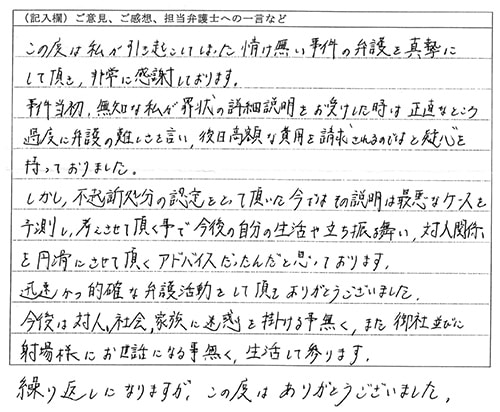 （記入欄）ご意見、ご感想、担当弁護士への一言など
この度は私が引き起こしてしまった情け無い事件の弁護を真摯に
して頂き、非常に感謝しております。
事件当初、無知な私が罪状の詳細説明をお受けした時は正直なところ
過度に弁護の難しさを言い、後日高額な費用を請求されるのではと疑心を
持っておりました。
しかし、不起訴処分の認定をとって頂いた今ではその説明は最悪なケースを
予測し、考えさせて頂く事で今後の自分の生活や立ち振る舞い、対人関係
を円滑にさせて頂くアドバイスだったんだと思っております。
迅速かつ的確な弁護活動をして頂きありがとうございました。
今後は対人、社会、家族に迷惑を掛ける事無く、また御社並びに
射場様にお世話になる事無く、生活して参ります。
繰り返しになりますが、この度はありがとうございました。